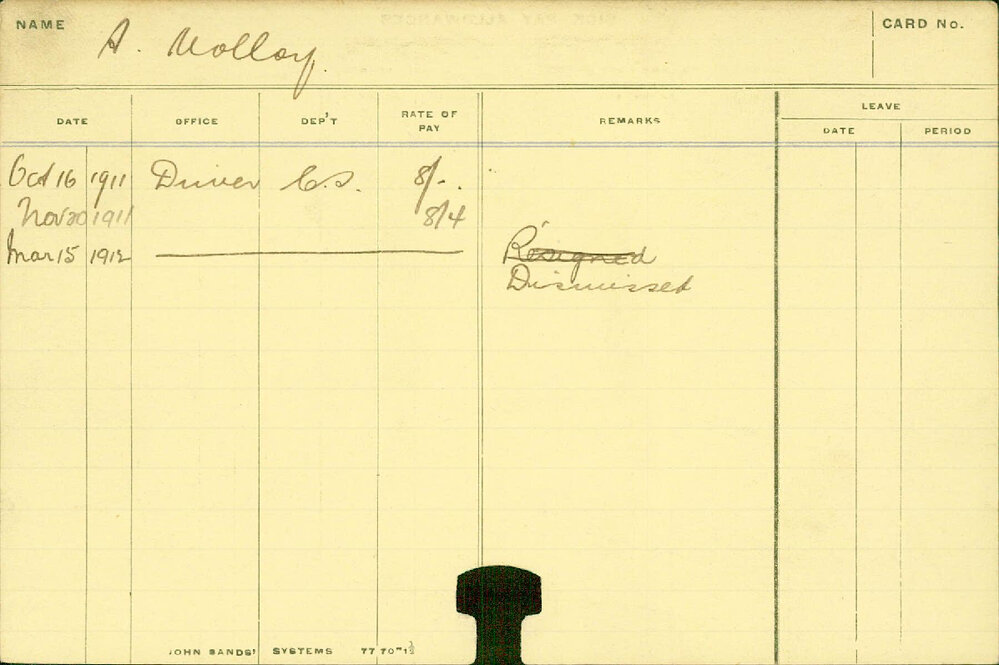 NAME A. Molloy. CARD No.
LEAVE
DATE OFFICE DEP'T RATE OF PAY REMARKS DATE PERIOD
Oct 16 1911 Driver C.S. 8/-.
Nov 20 1911 8/4
Mar 15 1912 Resigned
Dismissed
JOHN SANDS' SYSTEMS